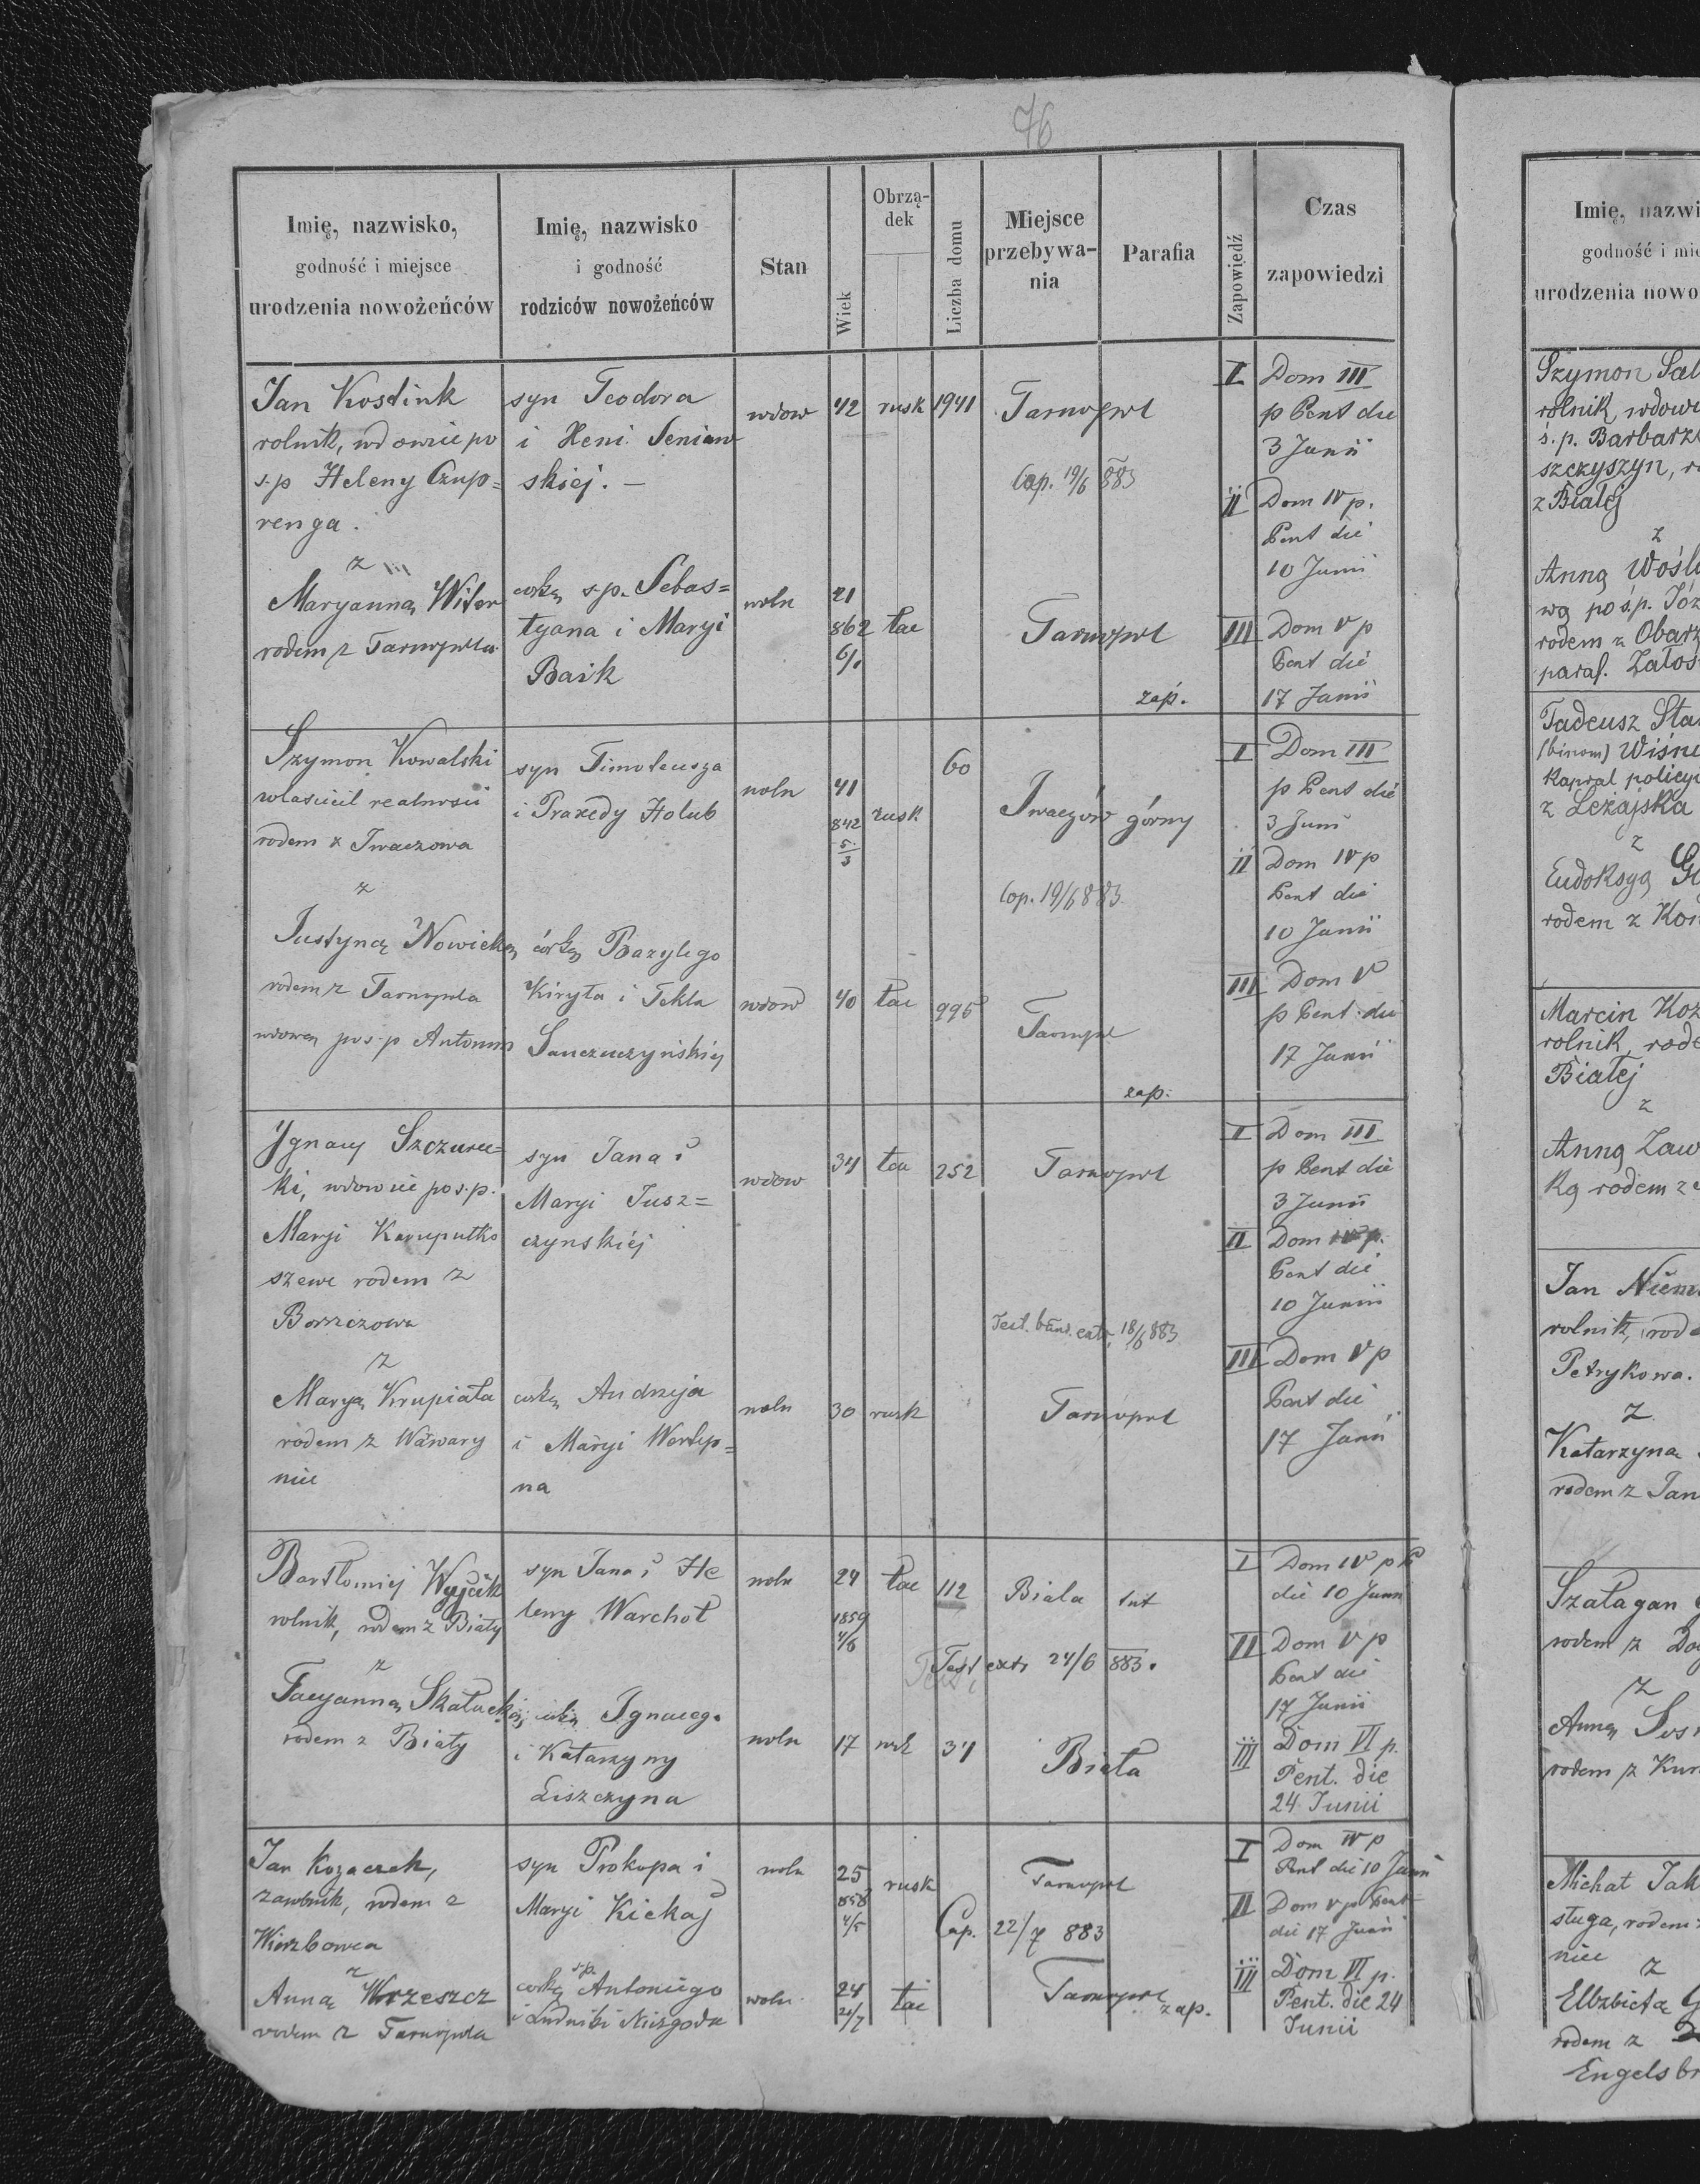 76
Imię, nazwisko, godność i miejsce urodzenia nowożeńców
Imię, nazwisko i godność rodziców nowożeńców
Stan
Wiek
Obrzą-
dek
Liczba domu
Miejsce
przebywa-
nia
Parafia
Zapowiedź
Czas
zapowiedzi
Jan Kosdink
rolnik, wdowiec po
s.p Heleny Czup=
renga.
z
Maryanną Witer
rodem z Tarnopola
syn Teodora
i Xeni Seniaw
skiej. —
corką s.p. Sebas=
tyana i Maryi
Baik
wdow
42
rusk
1941
Tarnopol
Cop. 19/6 883
woln
21
862
6/1
łac
Tarnopol
zap.
I Dom III
p Pent die
3 Junii
II Dom IV p.
Pent die
10 Junii
III Dom V p
Pent die
17 Junii
Szymon Kowalski
własciciel realnosci
rodem z Iwaczowa
z
Justyną Nowicką
rodem z Tarnopola
wdową po s.p Antonim
syn Timoteusza
i Praxedy Holub
córką Bazylego
Kiryła i Tekla
woln
41
842
5/3
rusk
60
Iwaczów górny
Cop. 19/6 883
wdow
40
łac
995
Tarnopol
zap.
I Dom III
p Pent die
3 Juni
II Dom IV p
Pent die
10 Junii
III Dom V
p Pent die
17 Junii
Ignacy Szczurec=
ki, wdowiec po s.p.
Maryi
szewe rodem z
z
Maryą Krupiała
rodem z Wawary
nie
syn Jana i
Maryi Jusz=
czynskiéj
corką Andrzeja
i Maryi Werlep=
na
wdow
34
łac
252
Tarnopol
Test. bann. extr. 18/6 883
woln
30
rusk
Tarnopol
I Dom III
p Pent die
3 Junii
II Dom IV p.
Pent die
10 Junii
III Dom V p
Pent die
17 Junii
Bartłomiej Wyjcik
rolnik, rodem z Biały
z
rodem z Biały
syn Jana i He
leny Warchoł
Ignacego
i Katarzyny
Liszczyna
woln
24
1859
4/6
łac
112
Biala tut
Test extr 24/6 883.
woln
17
34
Biała
I Dom IV p P
die 10 Junii
II Dom V p
Pent die
17 Junii
III Dom VI p.
Pent. die
24 Junii
Jan Kozaczek,
zarobnik, rodem z
z
Anną Wrzeszcz
rodem z Tarnopola
syn Prokopa i
Maryi Kickaj
corką s.p. Antoniego
i Ludwiki Niezgoda
woln
25
858
4/5
rusk
Tarnopol
Cop. 22/7 883
woln
24
21/7
łac
Tarnopol
zap.
I Dom IV p
Pent die 10 Junii
II Dom V p Pent
die 17 Junii
III Dom VI p.
Pent. die 24
Junii
Imię, nazwi
godność i mie
urodzenia nowo
rolnik, wdowi
ś.p. Barbarz
szczyszyn, r
z Białéj
z
Anną Wośl
wą po ś.p. Józ
rodem z Obarz
paraf. Załoś
Tadeusz Sta
(binom) Wiśni
Kapral policyi
z Leżajska
z
Eudoksyą G
rodem z Kon
Marcin Koz
rolnik, rode
Białej
z
Anną Zaw
ką rodem z
Jan Niem
rolnik, rode
Petrykowa.
z
Katarzyna
rodem z Jan
Szałagan
rodem z Do
z
Anną Sos
rodem z Kur
Michał Jak
sługa, rodem
nice
z
Elbzbieta G
rodem z
Engelsbr